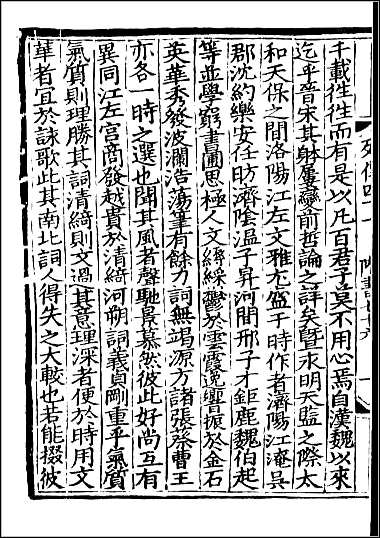 千載往往而有是以凡百君子莫不用心焉自漢魏以來
迄乎晉宋其躰屢變前哲論之詳矣暨永明天監之際太
和天保之間洛陽江左文雅尤盛于時作者濟陽江淹吳
郡沈約樂安任昉濟陰溫子昇河間邢子才鉅鹿魏伯起
等並學窮書圃思極人文縟綵鬱於雲霞逸響振於金石
英華秀發波瀾浩蕩筆有餘力詞無竭源方諸張蔡曹王
亦各一時之選也聞其風者聲馳景慕然彼此好尚互有
異同江左宮商發越貴於清綺河朔詞義貞剛重乎氣質
氣質則理勝其詞清綺則文過其意理深者便於時用文
華者宜於詠歌此其南北詞人得失之大較也若能掇彼